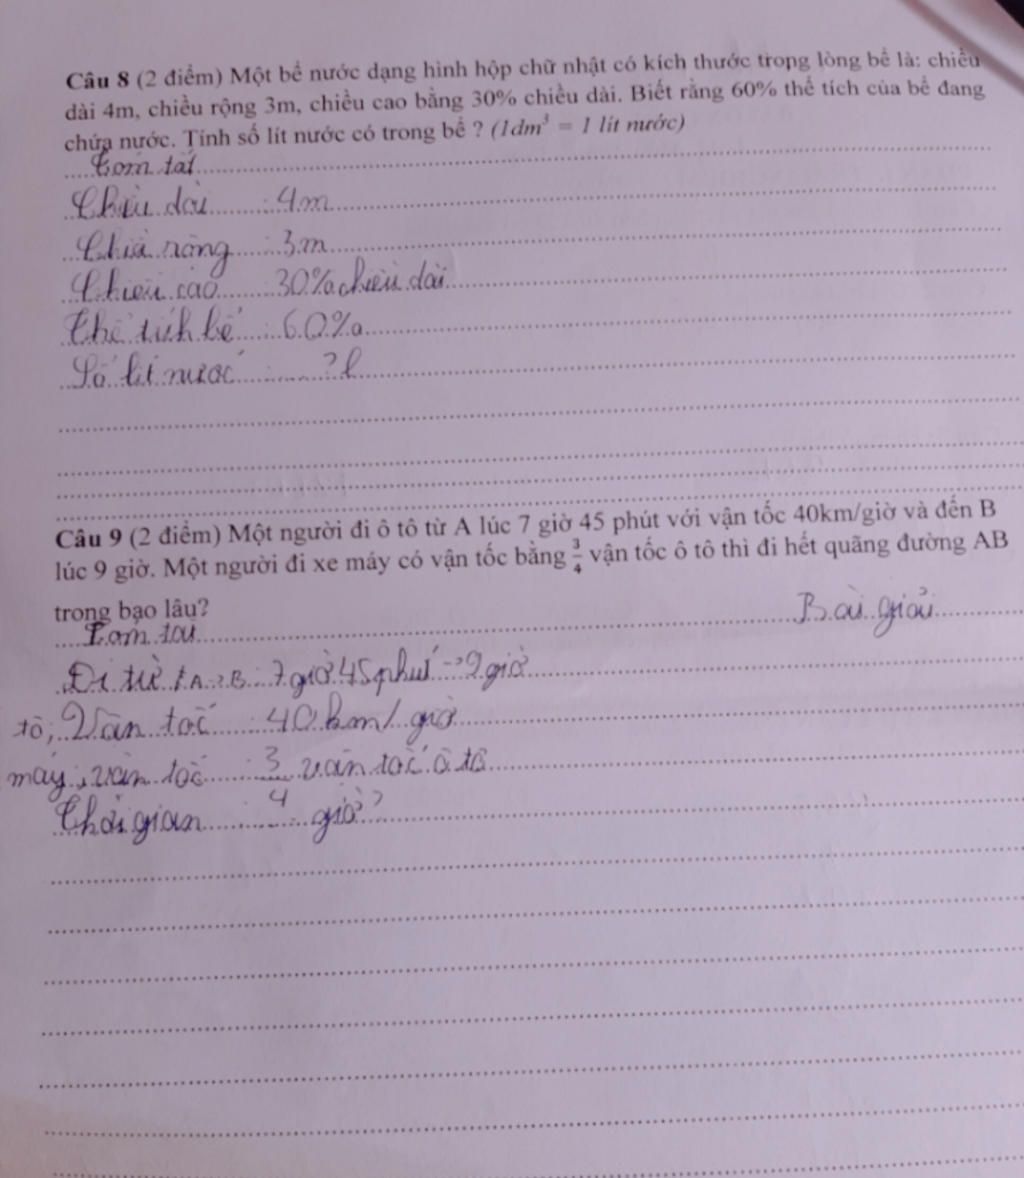 Câu 8 (2 điểm) Một bể nước dạng hình hộp chữ nhật có kích thước trong lòng bể là: chiều
dài 4m, chiều rộng 3m, chiều cao bằng 30% chiều dài. Biết rằng 60% thể tích của bể đang
chứa nước. Tính số lít nước có trong bể ? (1dm³ = 1 lít nước)
Tóm tắt
Chiều dài : 4m
Chiều rộng : 3m
Chiều cao : 30% chiều dài
Thể tích bể : 60%
Số lít nước : ... ? l
Câu 9 (2 điểm) Một người đi ô tô từ A lúc 7 giờ 45 phút với vận tốc 40km/giờ và đến B
lúc 9 giờ. Một người đi xe máy có vận tốc bằng 3/4 vận tốc ô tô thì đi hết quãng đường AB
trong bao lâu?
Tóm tắt Bài giải
Đi từ A→B : 7 giờ 45 phút → 9 giờ
tô, Vận tốc : 40 km/ giờ
máy, vận tốc : 3/4 vận tốc ô tô
Thời gian : ... giờ?